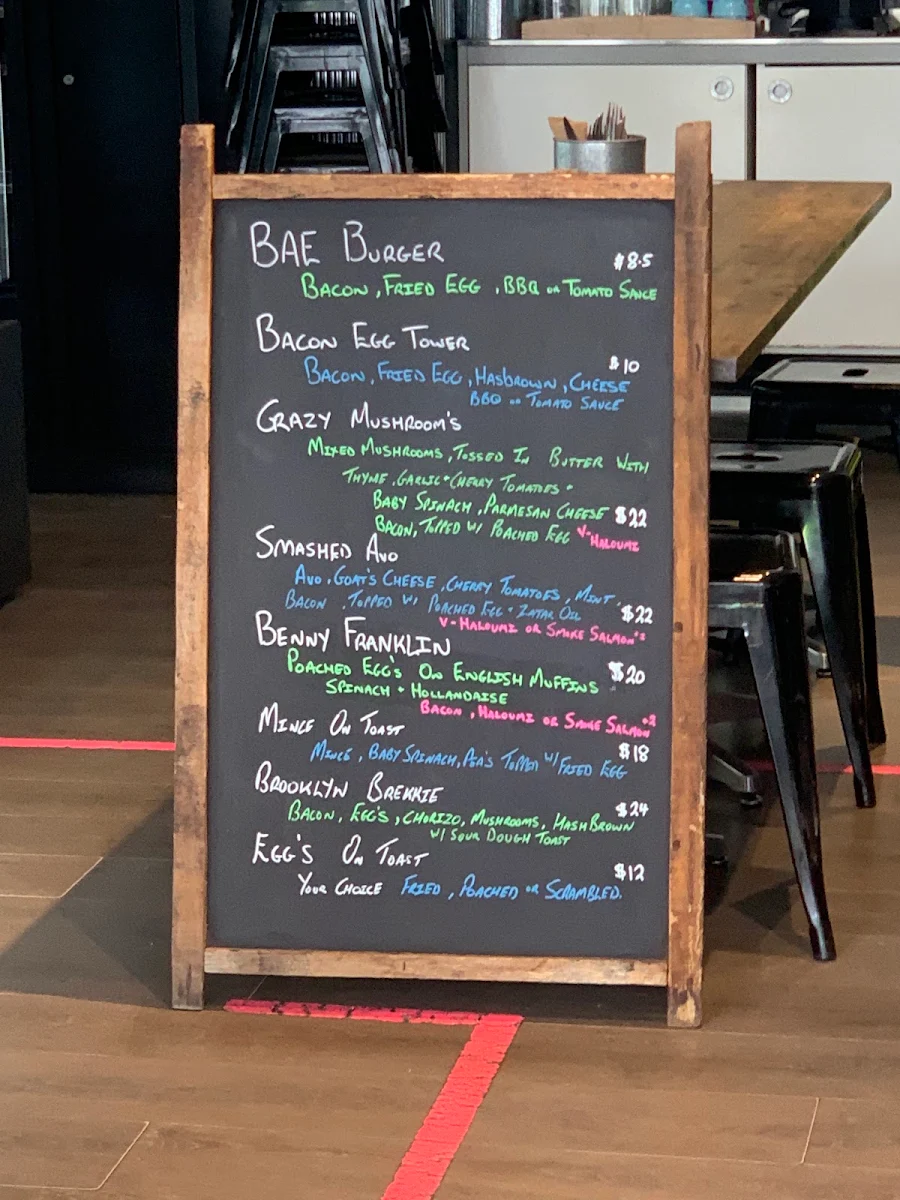 BAE BURGER
$8.5
BACON, FRIED EGG, BBQ OR TOMATO SAUCE
BACON EGG TOWER
$10
BACON, FRIED EGG, HASBROWN, CHEESE
BBQ OR TOMATO SAUCE
CRAZY MUSHROOM'S
MIXED MUSHROOMS, TOSSED IN BUTTER WITH
THYME, GARLIC + CHERRY TOMATOES +
BABY SPINACH, PARMESAN CHEESE $22
BACON, TOPPED W/ POACHED EGG V-HALOUMI
SMASHED AVO
AVO, GOAT'S CHEESE, CHERRY TOMATOES, MINT,
BACON, TOPPED W/ POACHED EGG + ZATAR OIL $22
V-HALOUMI OR SMOKE SALMON
BENNY FRANKLIN
POACHED EGG'S ON ENGLISH MUFFINS $20
SPINACH + HOLLANDAISE
BACON, HALOUMI OR SMOKE SALMON
MINCE ON TOAST
$18
MINCE, BABY SPINACH, PEA'S TOPPED W/ FRIED EGG
BROOKLYN BREKKIE
$24
BACON, EGG'S, CHORIZO, MUSHROOMS, HASHBROWN
W/ SOUR DOUGH TOAST
EGG'S ON TOAST
$12
YOUR CHOICE FRIED, POACHED OR SCRAMBLED.